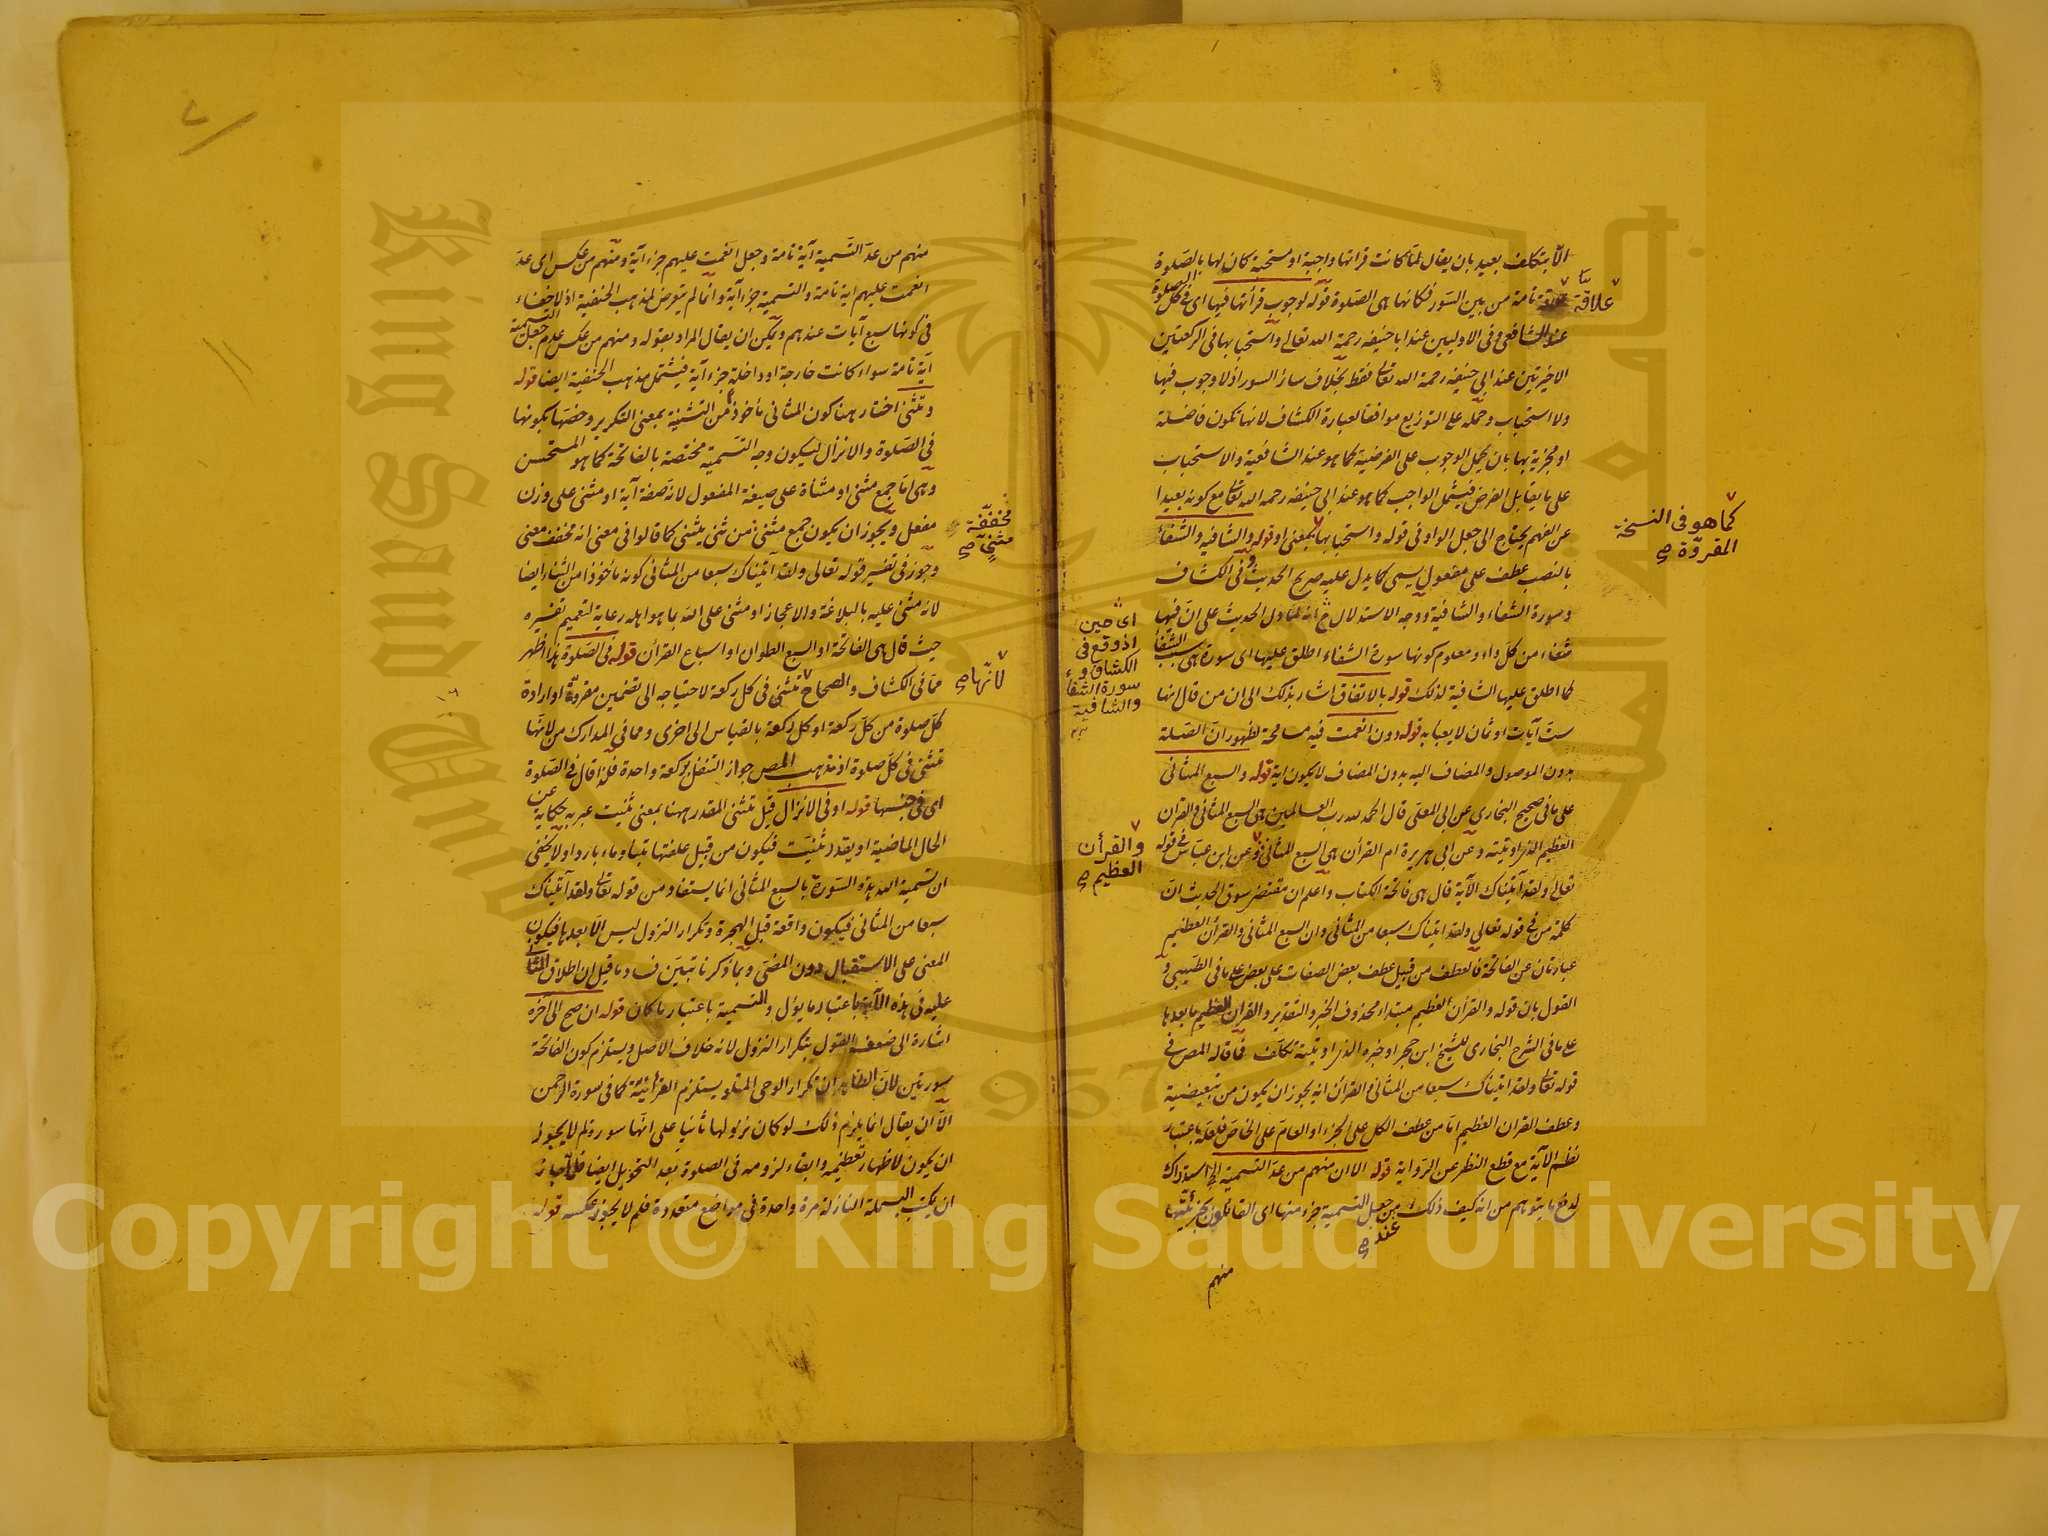 الا بتكلف بعيد بان يقال لما كانت قرأتها واجبة او مستحبة كان لها بالصلوة
علاقة تامة من بين السور فكانها هى الصلوة قوله لوجوب قرأتها فيها اى فى كل الصلوة
عند الشافعى وفى الاوليين عند ابا حنيفه رحمة الله تعالى واستحبابها فى الركعتين
الاخيرتين عند ابى حنيفه رحمة الله تعالى فقط بخلاف سائر السور اذ لا وجوب فيها
ولا استحباب وحمله على التوزيع موافقا لعبارة الكشاف لانها تكون فاضلة
او مجزية بها بان يحمل الوجوب على الفرضية كما هو عند الشافعية والاستحباب
على ما يقابل الفرض فيشمل الواجب كما هو عند ابى حنيفه رحمه الله تعالى مع كونه بعيدا
عن الفهم يحتاج الى جعل الواو فى قوله واستحبابها بمعنى او قوله والشافيه والشفاء
كما هو فى النسخة
المقروّة صح
بالنصب عطف على مفعول يسمى كما يدل عليه صريح الحديث وفى الكشاف
وسورة الشفاء والشافية ووجه الاستدلال ح انه لما دل الحديث على ان فيها
اى حين
اذ وقع فى
الكشاف و
سورة الشفاء
والشافية
شفاء من كل داء ومعلوم كونها سورة الشفاء اطلق عليها اى سورة هى سبب الشفاء
كما اطلق عليها الشافية لذلك قوله بالاتفاق اشار بذلك الى ان من قال انها
ست آيات او ثمان لا يعبا به قوله دون انعمت فيه مسامحة لظهور ان الصلة
بدون الموصول والمضاف اليه بدون المضاف لا يكون اية قوله والسبع المثانى
على ما فى صحيح البخارى عن ابى المعلى قال الحمد لله رب العالمين هى السبع المثانى والقران
العظيم الذى اوتيته وعن ابى هريرة ام القرأن هى السبع المثانى وعن ابن عباس فى قوله
والقرأن
العظيم صح
تعالى ولقد آتيناك الآية قال هى فاتحة الكتاب واعلم ان مقتضى سوق الحديث ان
كلمة من فى قوله تعالى ولقد اتيناك سبعا من المثانى وان السبع المثانى والقرأن العظيم
عبارتان عن الفاتحة فالعطف من قبيل عطف بعض الصفات على بعض على ما فى الطيبى و
القول بان قوله والقرأن العظيم مبتداء محذوف الخبر والتقدير والقران العظيم ما بعدها
على ما فى الشرح البخارى للشيخ ابن حجر او خبره الذى اوتيته تكلف فما قاله المص فى
قوله تعالى ولقد اتيناك سبعا من المثانى والقرأن انه يجوز ان يكون من تبعيضية
وعطف القران العظيم اما من عطف الكل على الجزء او العام على الخاص فلعله باعتبار
نظم الآية مع قطع النظر عن الرواية قوله الا ان منهم من عد التسمية الخ استدراك
لدفع ما يتوهم من انه كيف ذلك ومن جعل التسمية جزء منها اى القائلون بجزئيتها
عنده صح
منهم
منهم من عد التسمية آية تامة وجعل انعمت عليهم جزء آية ومنهم من عكس اى عد
انعمت عليهم اية تامة والتسمية جزء آية وانما لم يتعرض لمذهب الحنفية اذ لا خفاء
فى كونها سبع آيات عندهم ويمكن ان يقال المراد بقوله ومنهم من عكس عدم جعل التسمية
آية تامة سواء كانت خارجة او داخلة جزء آية فيشمل مذهب الحنفية ايضا قوله
وتثنى اختار ههنا كون المثانى مأخوذ من التثنية بمعنى التكرير وخصها بكونها
فى الصلوة والانزال ليكون وجه التسمية مختصة بالفاتحة كما هو المستحسن
وهى اما جمع مثنى او مثناة على صيغة المفعول لانه صفة آية او مثنى على وزن
مفعل ويجوز ان يكون جمع مثنى من ثنى يثنى كما قالوا فى معنى انه مخفف معنى
مخففة
مثنى صح
وجوز فى تفسير قوله تعالى ولقد آتيناك سبعا من المثانى كونه مأخوذا من الثناء ايضا
لانه مثنى عليه بالبلاغة والاعجاز او مثنى على الله بما هو اهله رعاية لتعميم تفسيره
حيث قال هى الفاتحة او السبع الطوال او اسباع القرأن قوله فى الصلوة هذا اظهر
مما فى الكشاف والصحاح تثنى فى كل ركعة لاحتياجه الى تضمين مقروة او ارادة
لانها صح
كل صلوة من كل ركعة او كل ركعة بالقياس الى اخرى ومما فى المدارك من لانها
تثنى فى كل صلوة اذ مذهب المص جواز التنفل بركعة واحدة فلذا قال فى الصلوة
اى فى جنسها قوله او فى الانزال قيل تثنى المقدر ههنا بمعنى ثنيت عبر به حكاية عن
الحال الماضية او يقدر ثنيت فيكون من قبيل علفتها تبنا وماء باردا ولا يخفى
ان تسمية الله هذه السورة بالسبع المثانى انما يستفاد من قوله تعالى ولقد آتيناك
سبعا من المثانى فيكون واقعة قبل الهجرة وتكرار النزول ليس الا بعدها فيكون
المعنى على الاستقبال دون المضى وبما ذكرنا تبين ف د ما قيل ان اطلاق المثانى
عليه فى هذه الآية باعتبار ما يؤل والتسمية باعتبار ما كان قوله ان صح الى اخره
اشارة الى ضعف القول بتكرار النزول لانه خلاف الاصل ويستلزم كون الفاتحة
سورتين لان الظاهر ان تكرار الوحى المتلو يستلزم القرأنية كما فى سورة الرحمن
الا ان يقال انما يلزم ذلك لو كان نزولها ثانيا على انها سورة لم لا يجوز
ان يكون لاظهار تعظيمه وابقاء لزومه فى الصلوة بعد التحويل ايضا فلما جاز
ان يكتب البسملة النازلة مرة واحدة فى مواضع متعددة فلم لا يجوز عكسه قوله
Copyright © King Saud University
King Saud University
1957